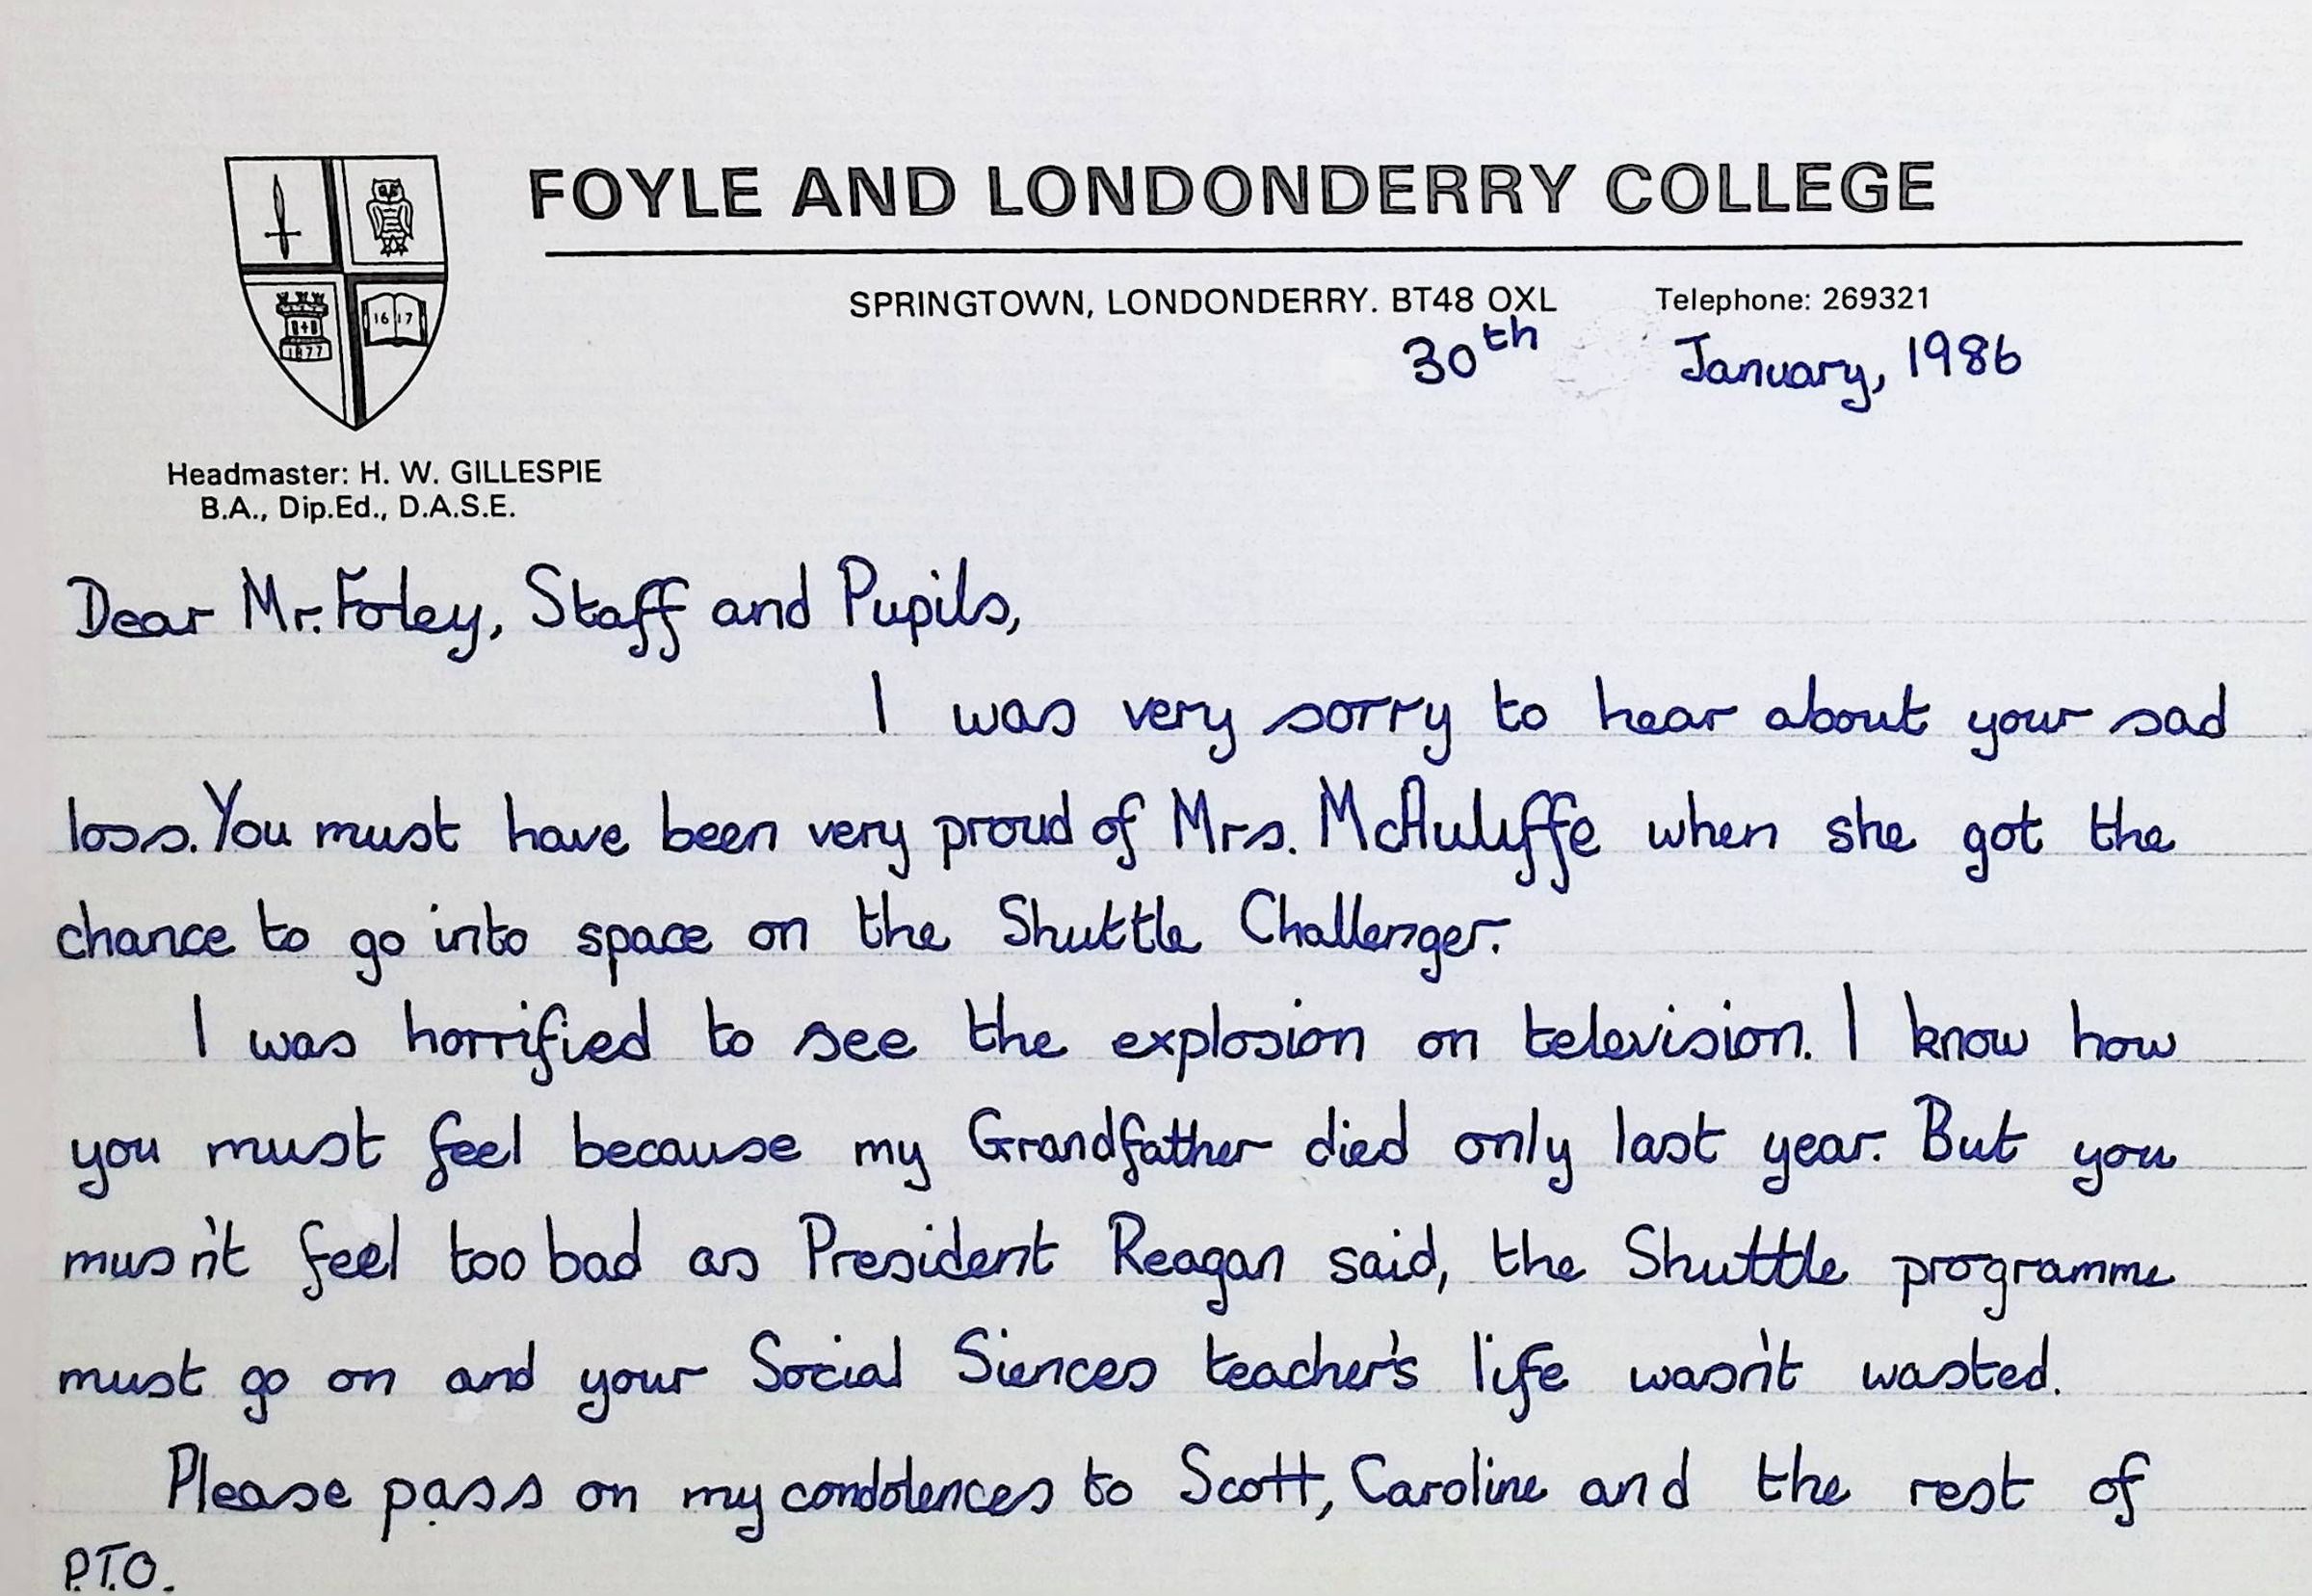 FOYLE AND LONDONDERRY COLLEGE
SPRINGTOWN, LONDONDERRY. BT48 OXL Telephone: 269321
30th January, 1986
16 17
1877
Headmaster: H. W. GILLESPIE
B.A., Dip.Ed., D.A.S.E.
Dear Mr. Foley, Staff and Pupils,
I was very sorry to hear about your sad
loss. You must have been very proud of Mrs. McAuliffe when she got the
chance to go into space on the Shuttle Challenger.
I was horrified to see the explosion on television. I know how
you must feel because my Grandfather died only last year. But you
musn't feel too bad as President Reagan said, the Shuttle programme
must go on and your Social Siences teacher's life wasn't wasted.
Please pass on my condolences to Scott, Caroline and the rest of
P.T.O.